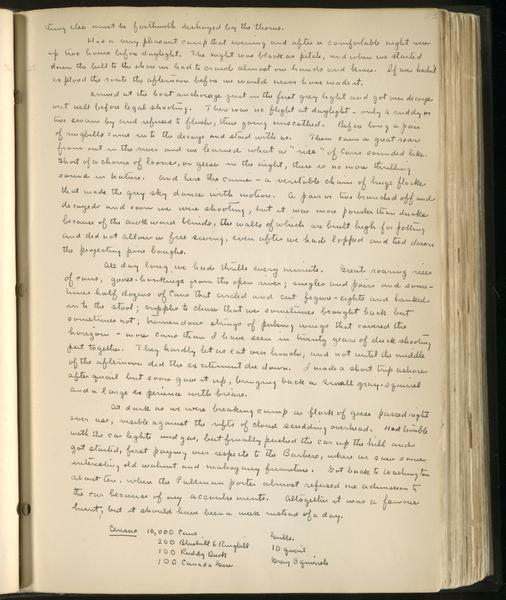 thing else must be forthwith destroyed by the thorns.
Had a very pleasant camp that evening and after a comfortable night were
up two hours before daylight. The night was black as pitch, and when we started
down the hill to the shore we had to crawl almost on hands and knees. If we hadn't
explored the route the afternoon before we would never have made it.
Arrived at the boat anchorage just in the first grey light and got our decoys
out well before legal shooting. There was no flight at daylight - only a ruddy or
two swam by and refused to flush, thus going unscathed. Before long a pair
of ringbills came in to the decoys and staid with us. Then came a great roar
from out in the river and we learned what a "rise" of Cans sounded like.
Short of a chorus of loons, or geese in the night, there is no more thrilling
sound in nature. And here they came - a veritable chain of huge flocks
that made the grey sky dance with motion. A pair or two branched off and
decoyed and soon we were shooting, but it was more powder than ducks
because of the awkward blinds, the walls of which are built high for potting
and did not allow a free swing, even after we had lopped and tied down
the projecting pine boughs.
All day long we had thrills every minute. Great roaring rises
of cans, goose-honkings from the open river; singles and pairs and some-
times half dozens of Cans that circled and cut figure-eights and banked
in to the stool; cripples to chase that we sometimes brought back but
sometimes not; tremendous strings of pulsing wings that covered the
horizon - more cans than I have seen in twenty years of duck shooting
put together. They hardly let us eat our lunch, and not until the middle
of the afternoon did the excitement die down. I made a short trip ashore
after quail but soon gave it up, bringing back a small gray-squirrel
and a large experience with briars.
At dusk as we were breaking camp a flock of geese passed right
over us, visible against the rifts of clouds scudding overhead. Had trouble
with the car lights and gas, but finally pushed the car up the hill and
got started, first paying our respects to the Barbers, where we saw some
interesting old walnut and mahogany furniture. Got back to Washington
about ten, when the Pullman porter almost refused me admission to
the car because of my accoutrements. Altogether it was a famous
hunt, but it should have been a week instead of a day.
Census 10,000 Cans Gulls.
200 Bluebill & Ringbill 10 quail
100 Ruddy Duck Gray Squirrels
100 Canada Geese